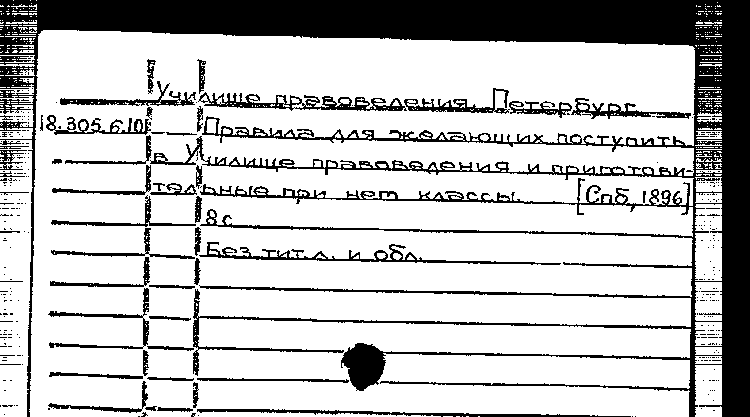 Училище правоведения. Петербург.
18.305.6.101 Правила для желающих поступить
в Училище правоведения и приготови-
тельные при нем классы. [Спб, 1896]
8 с.
Без тит. л. и обл.